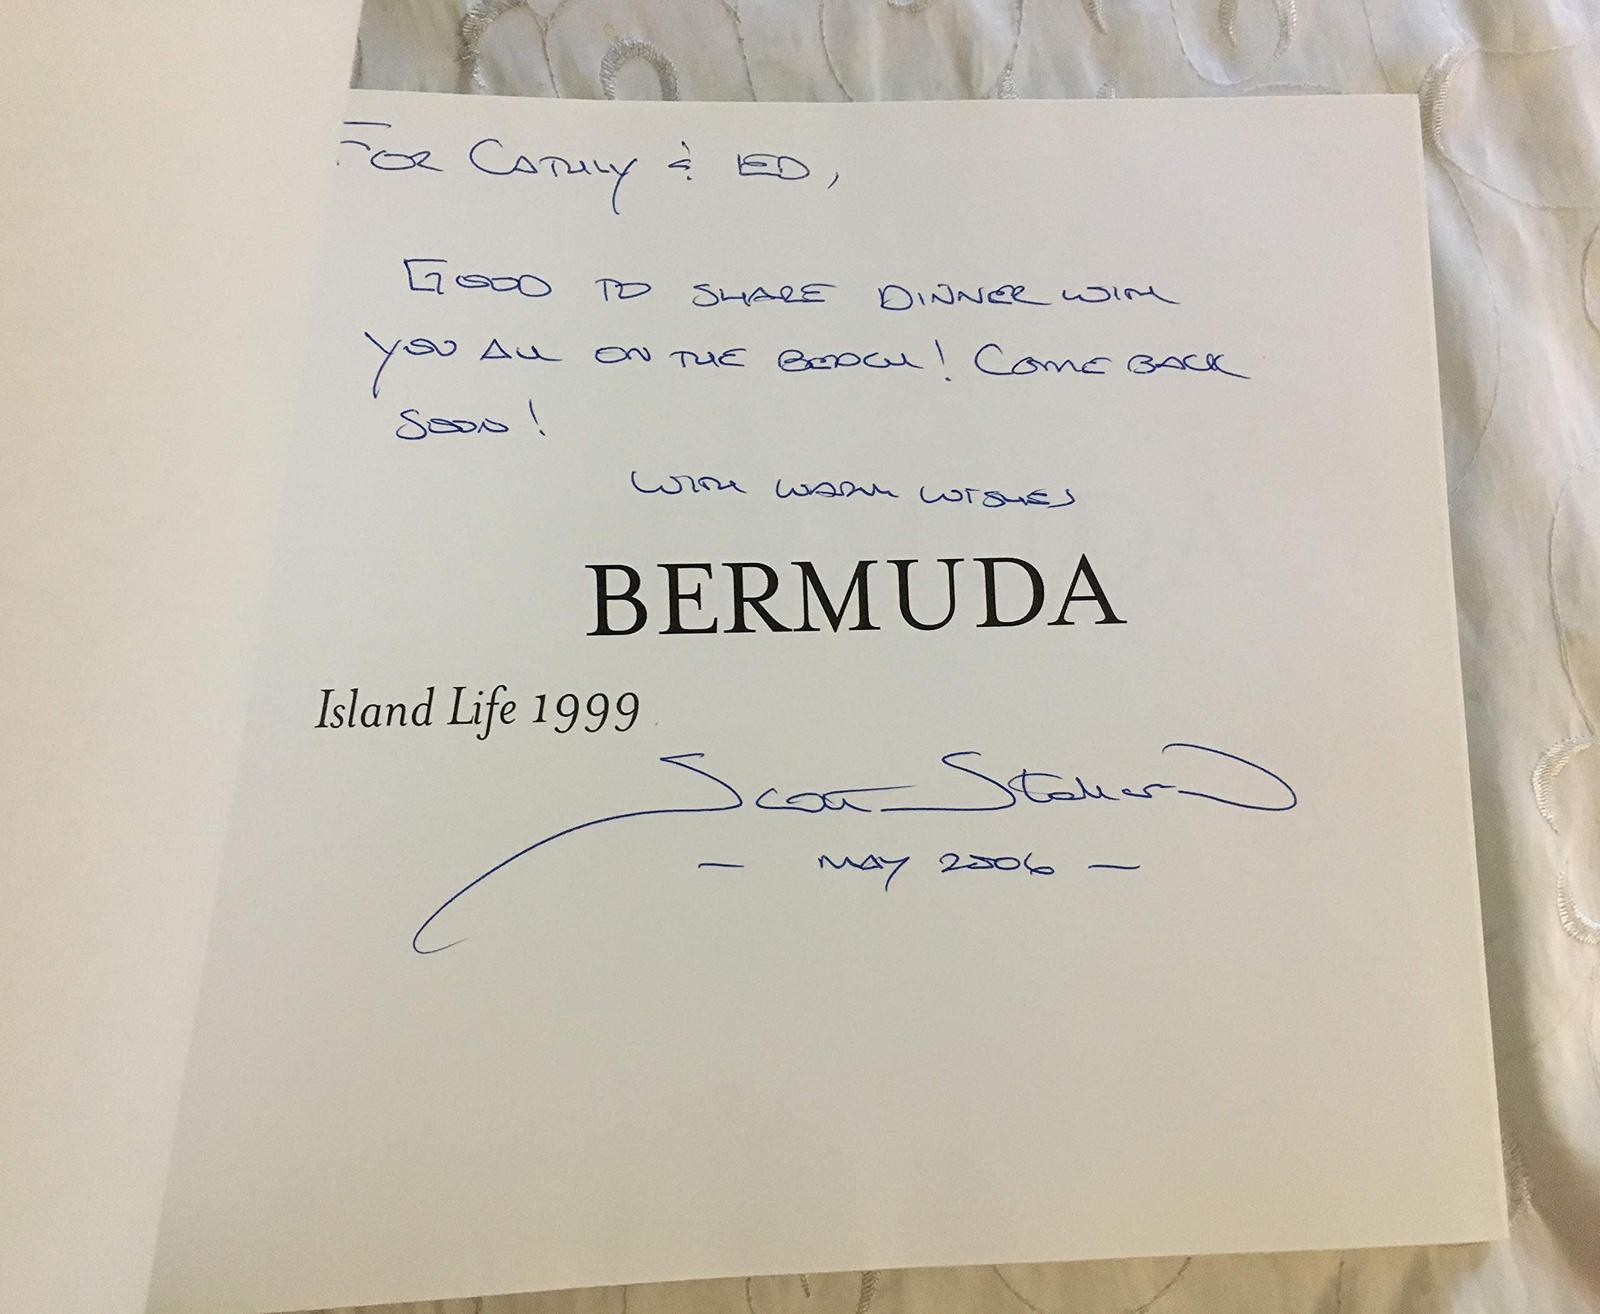 FOR CATHY & ED,
GOOD TO SHARE DINNER WITH
YOU ALL ON THE BEACH! COME BACK
SOON!
WITH WARM WISHES
BERMUDA
Island Life 1999
Scott Stallard
— MAY 2006 —